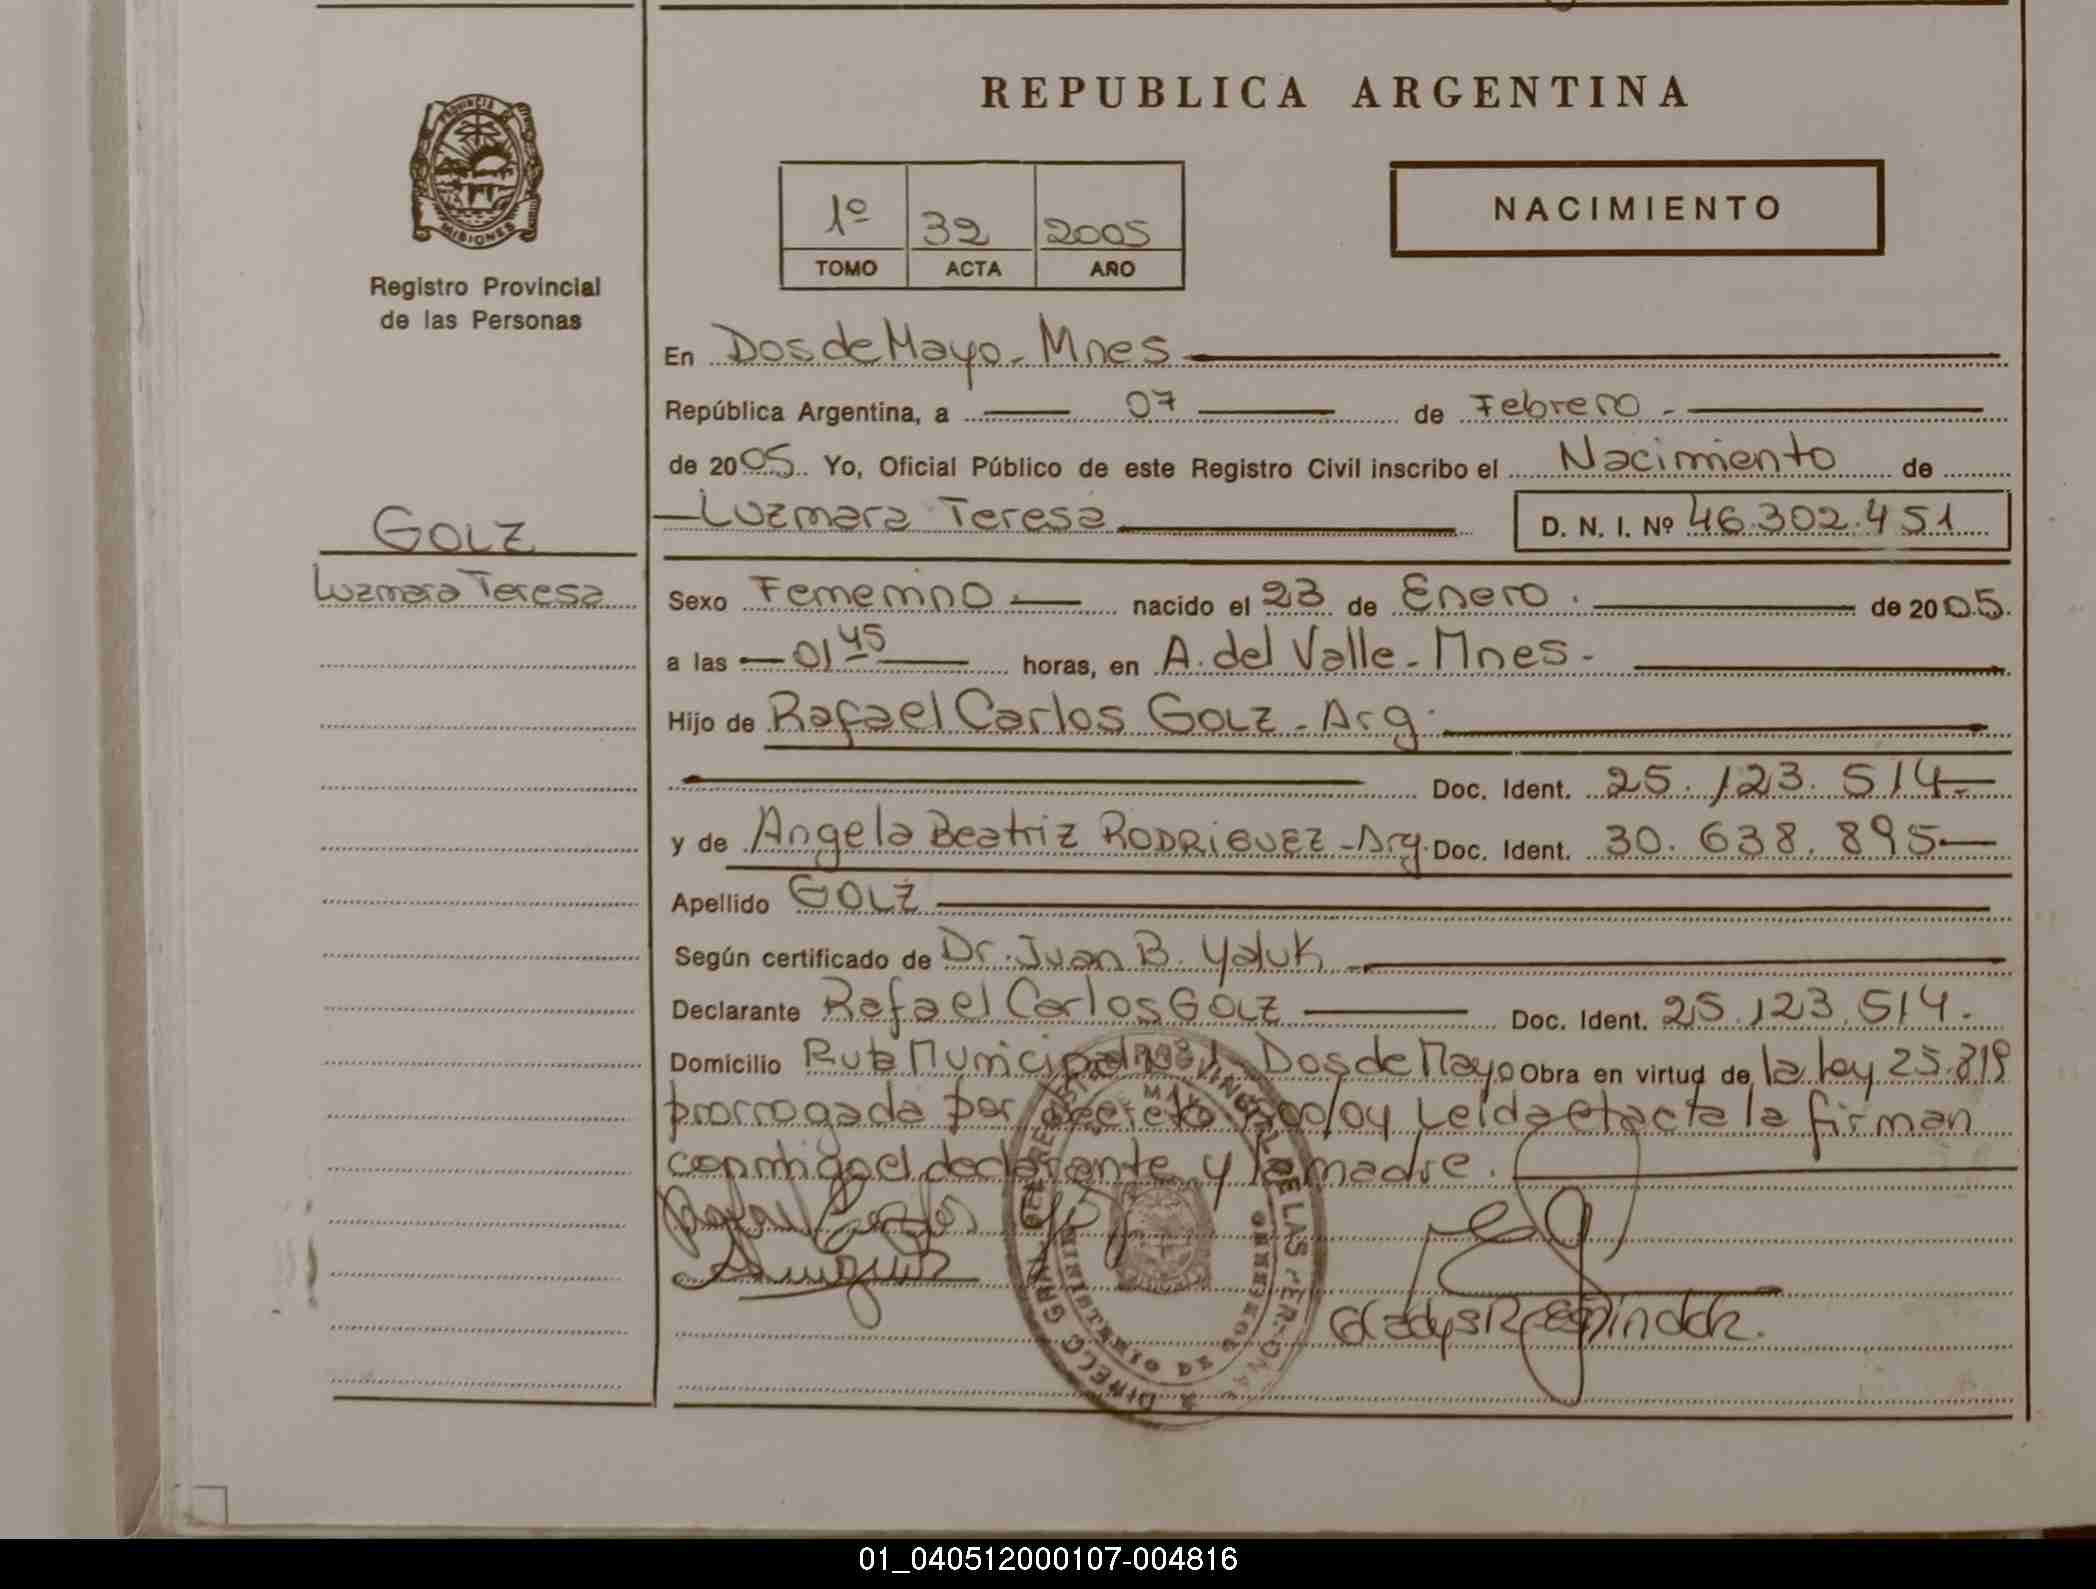 REPUBLICA ARGENTINA
PROVINCIA
MISIONES
Registro Provincial
de las Personas
1º 32 2005
TOMO ACTA AÑO
NACIMIENTO
GOLZ
Luzmara Teresa
En Dos de Mayo - Mnes
República Argentina, a 07 de Febrero -
de 2005 Yo, Oficial Público de este Registro Civil inscribo el Nacimiento de
Luzmara Teresa D. N. I. Nº 46.302.451
Sexo Femenino nacido el 23 de Enero. de 2005.
a las 01 45 horas, en A. del Valle - Mnes -
Hijo de Rafael Carlos GOLZ - Arg.
Doc. Ident. 25.123.514 -
y de Angela Beatriz RODRIGUEZ - Arg. Doc. Ident. 30.638.895
Apellido GOLZ
Según certificado de Dr. Juan B. Yaluk
Declarante Rafael Carlos GOLZ Doc. Ident. 25.123.514.
Domicilio Ruta Municipal Dos de Mayo Obra en virtud de la ley 25.819
prorrogada por decreto Leída el acta la firman
conmigo el declarante y la madre.
Rafael Carlos
DIRECC GRAL DEL REGISTRO PROVINCIAL DE LAS PERSONAS
MINISTERIO DE GOBIERNO
Gladys R.
01_040512000107-004816